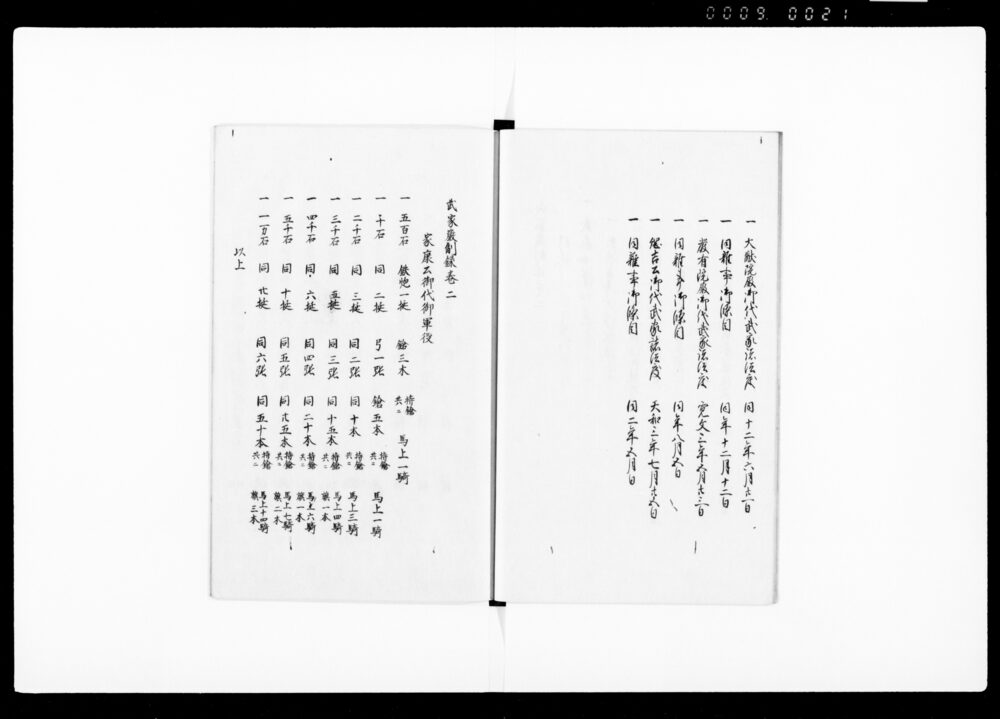 0009 0021
一 大猷院殿御代武家諸法度 同十二年六月廿一日
一 同雑事御條目 同年十二月十二日
一 厳有院殿御代武家諸法度 寛文三年五月廿三日
一 同雑事御條目 同年八月五日
一 綱吉公御代武家諸法度 天和三年七月廿五日
一 同雑事御條目 同二年五月日
武家厳制録巻二
家康公御代御軍役
一 五百石 鉄炮一挺 鎗三本 持鎗共ニ 馬上一騎
一 千石 同二挺 弓一張 鎗五本 持鎗共ニ 馬上一騎
一 二千石 同三挺 同二張 同十本 持鎗共ニ 馬上三騎
一 三千石 同五挺 同三張 同十五本 持鎗共ニ 馬上四騎 旗一本
一 四千石 同六挺 同四張 同二十本 持鎗共ニ 馬上六騎 旗一本
一 五千石 同十挺 同五張 同廿五本 持鎗共ニ 馬上七騎 旗二本
一 一万石 同廿挺 同六張 同五十本 持鎗共ニ 馬上十四騎 旗三本
以上